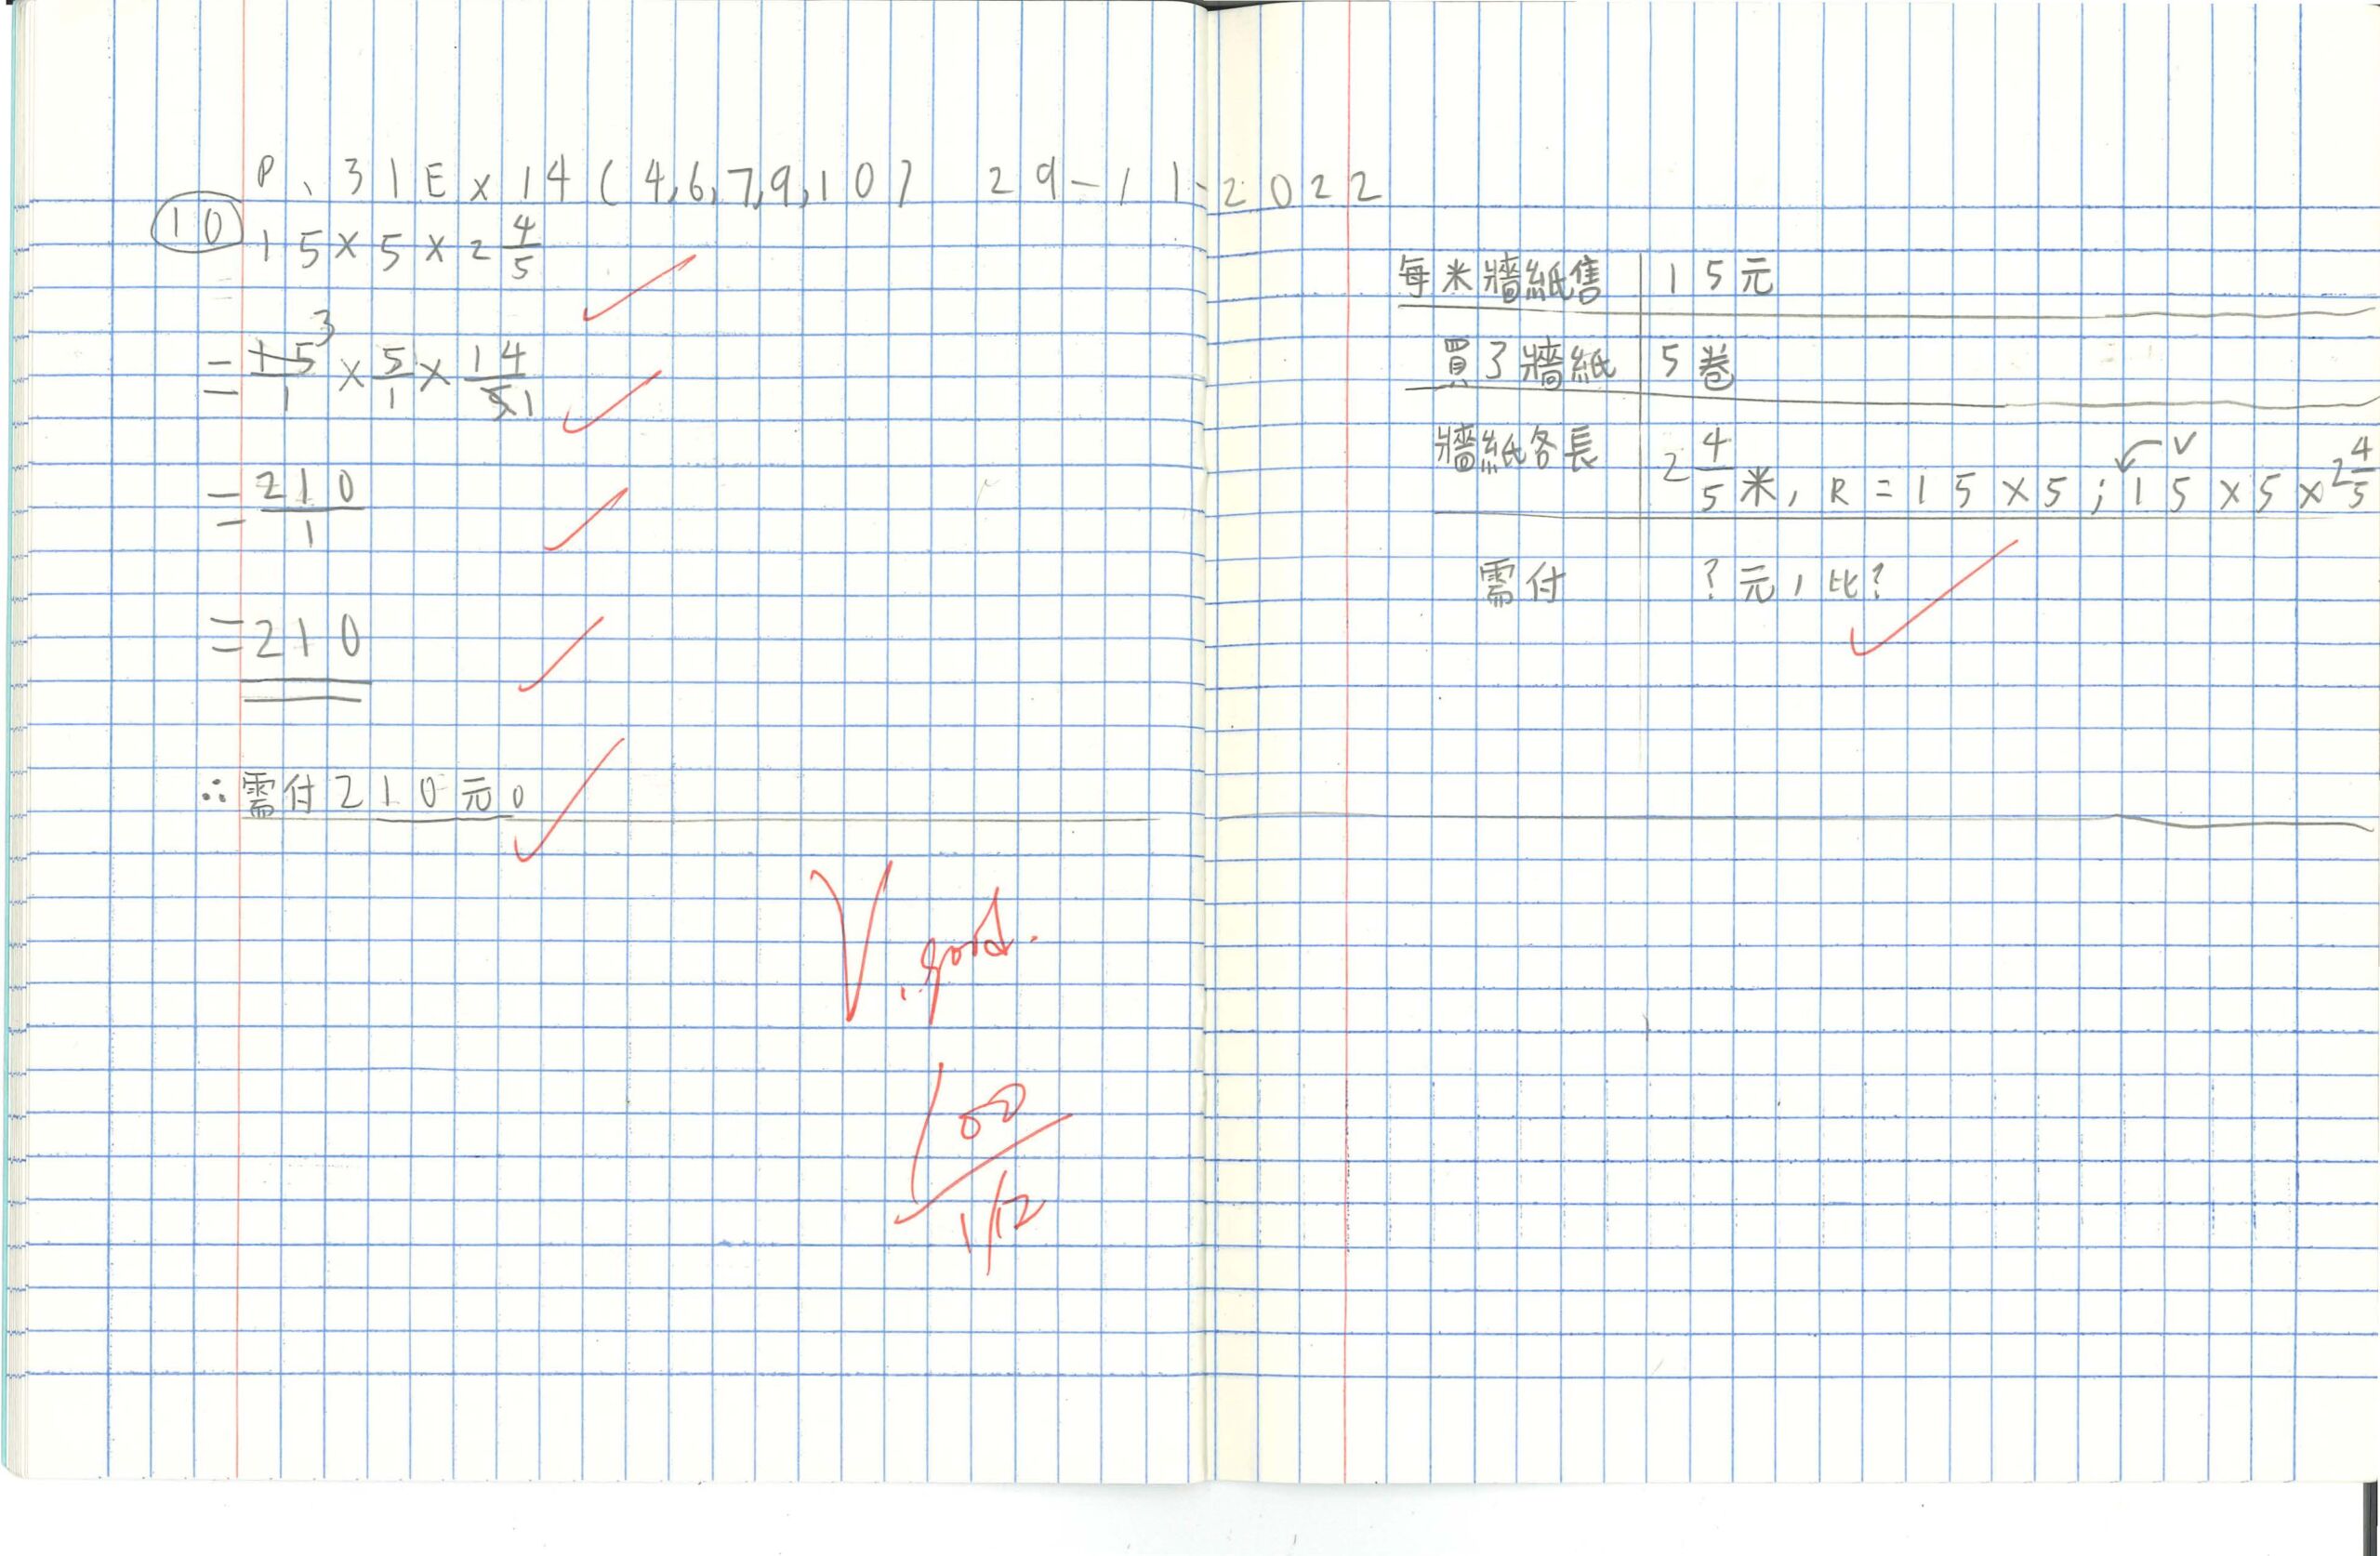 P、31Ex14(4,6,7,9,10) 29-11-2022
⑩ 15×5×2 4/5
= 15/1 3 × 5/1 × 14/5 1
= 210/1
= 210
∴需付210元。
V. good.
100
1/12
每米牆紙售 15元
買了牆紙 5卷
牆紙各長 2 4/5米, R=15×5;15×5×2 4/5
需付 ?元,比?